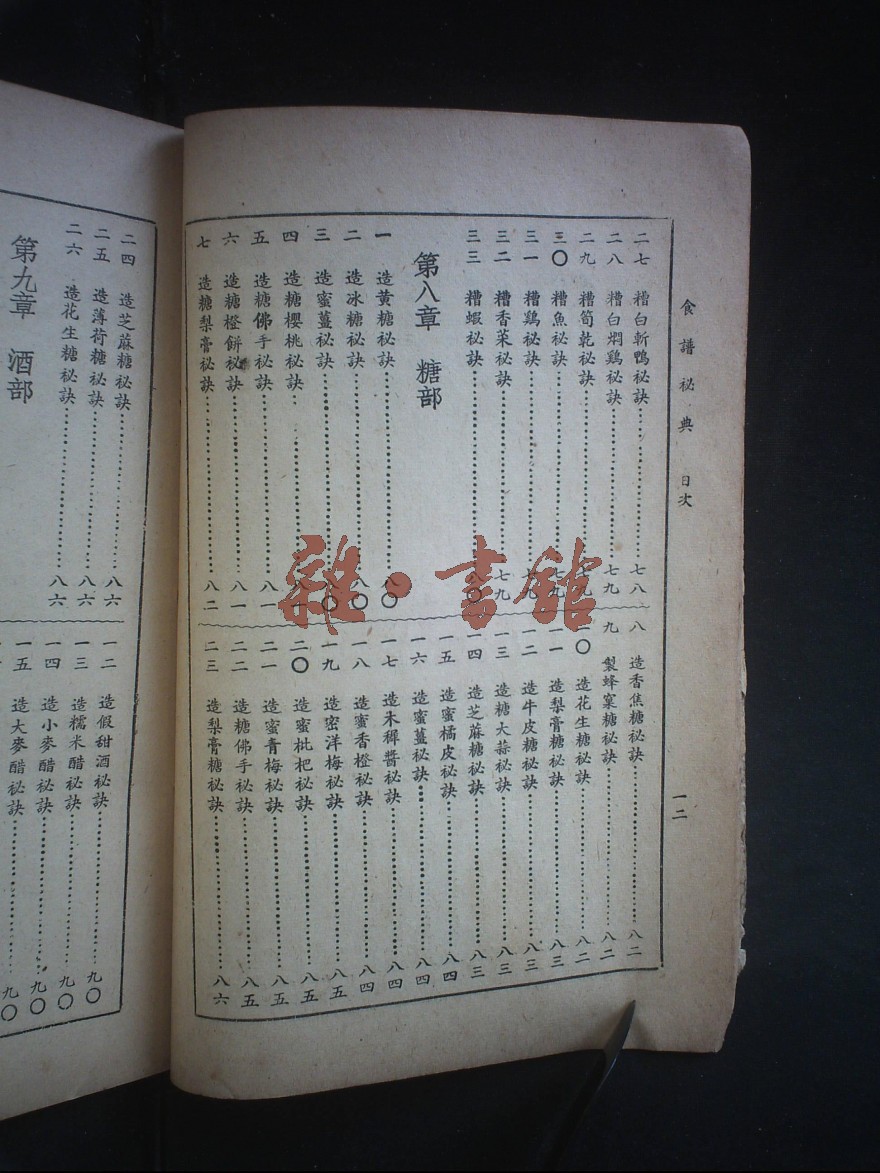 食譜秘典　目次
一二
二七　糟白斬鴨秘訣……七八
二八　糟白燜鷄秘訣……七九
二九　糟筍乾秘訣……七九
三〇　糟魚秘訣……七九
三一　糟鷄秘訣……七九
三二　糟香菜秘訣……七九
三三　糟蝦秘訣……八〇
第八章　糖部
一　造黃糖秘訣……八〇
二　造冰糖秘訣……八〇
三　造蜜薑秘訣……八〇
四　造糖櫻桃秘訣……八一
五　造糖佛手秘訣……八一
六　造糖橙餅秘訣……八一
七　造糖梨膏秘訣……八二
八　造香焦糖秘訣……八二
九　製蜂窠糖秘訣……八二
一〇　造花生糖秘訣……八二
一一　造梨膏糖秘訣……八三
一二　造牛皮糖秘訣……八三
一三　造糖大蒜秘訣……八三
一四　造芝蔴糖秘訣……八三
一五　造蜜橘皮秘訣……八四
一六　造蜜薑秘訣……八四
一七　造木樨醬秘訣……八四
一八　造蜜香橙秘訣……八四
一九　造密洋梅秘訣……八五
二〇　造蜜枇杷秘訣……八五
二一　造蜜青梅秘訣……八五
二二　造糖佛手秘訣……八五
二三　造梨膏糖秘訣……八六
二四　造芝蔴糖秘訣……八六
二五　造薄荷糖秘訣……八六
二六　造花生糖秘訣……八六
第九章　酒部
一二　造假甜酒秘訣……九〇
一三　造糯米醋秘訣……九〇
一四　造小麥醋秘訣……九〇
一五　造大麥醋秘訣……九〇
雜·書館